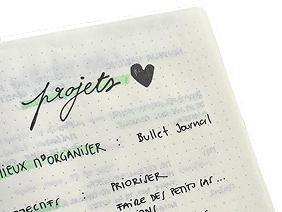 projets
MIEUX M'ORGANISER : Bullet Journal
OBJECTIFS : PRIORISER
FAIRE DES PETITS PAS...